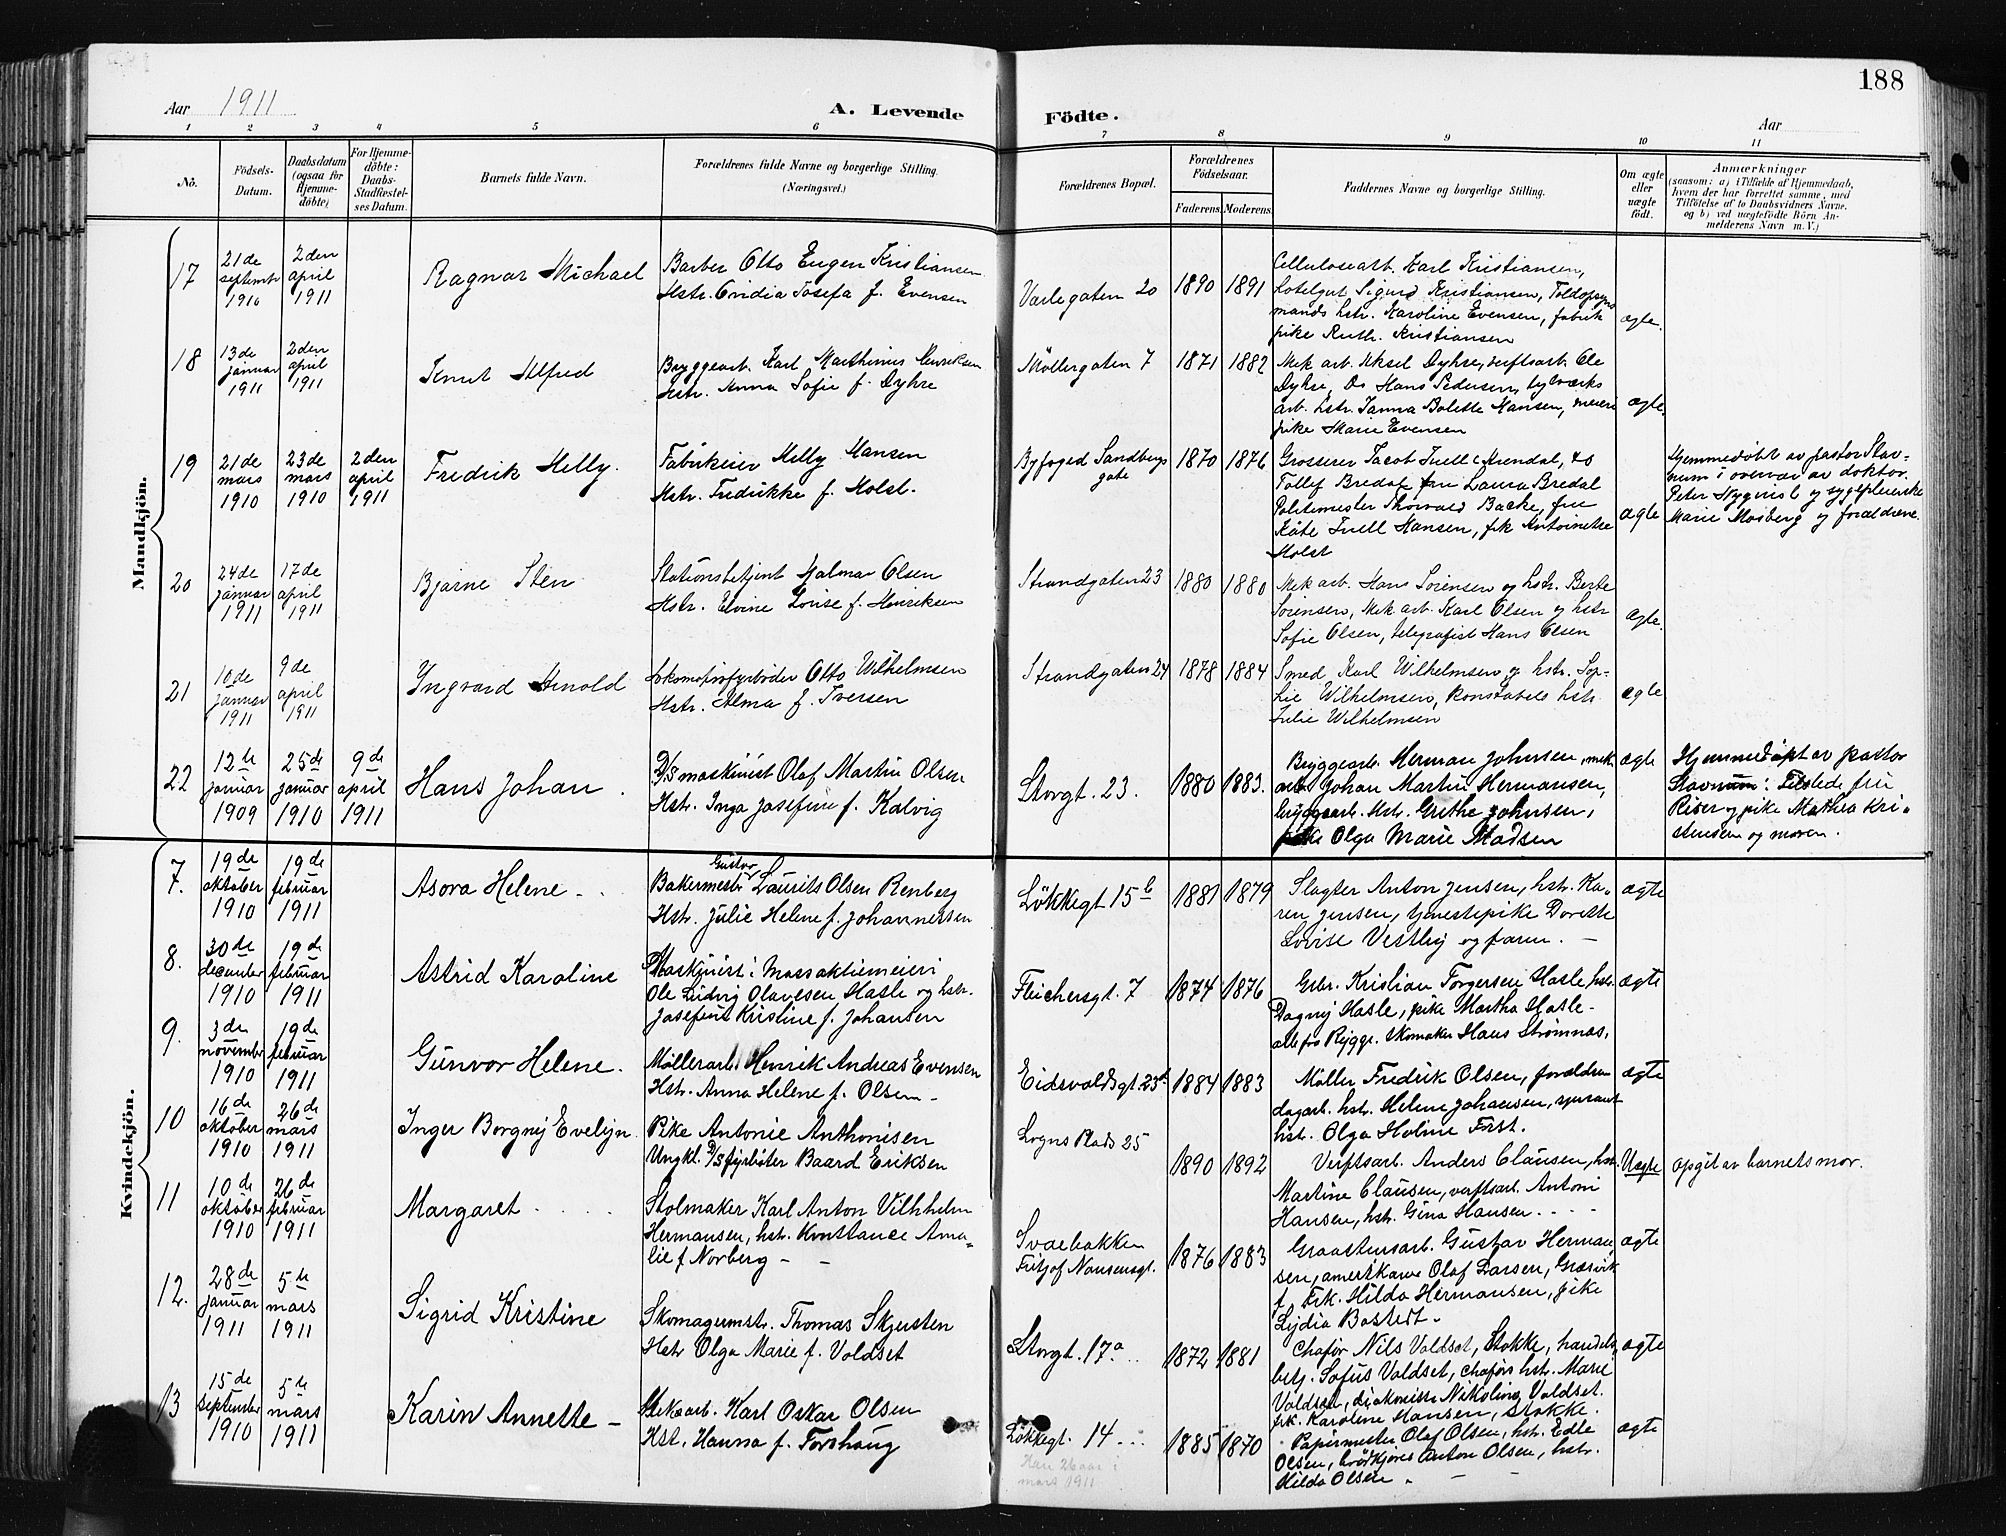 188
Aar 1911
A. Levende Födte.
Aar
1 2 3 4 5 6 7 8 9 10 11
Nô.
Födsels-
Datum.
Daabsdatum
(ogsaa for
Hjemme-
döbte)
For Hjemme-
döbte:
Daabs-
Stadfæstel-
ses Datum.
Barnets fulde Navn.
Forældrenes fulde Navne og borgerlige Stilling.
(Næringsvei.)
Forældrenes Bopæl.
Forældrenes
Födselsaar.
Faderens. Moderens.
Faddernes Navne og borgerlige Stilling.
Om ægte
eller
uægte
födt.
Anmærkninger
(saasom: a) i Tilfælde af Hjemmedaab,
hvem der har forrettet samme, med
Tilföielse af to Daabsvidners Navne.
og b) ved uægtefödte Börn An-
melderens Navn m. V.)
Mandkjön.
17
21de
septembr
1910
2den
april
1911
Ragnar Michael
Barber Otto Eugen Kristiansen
Hstr. Ovidia Josefa f. Evensen
Varlegaten 20
1890 1891
Cellulosearb. Karl Kristiansen,
hotelgut Sigurd Kristiansen, Toldopsyns
mands hstr. Karoline Evensen, fabrik
pike Ruth Kristiansen
ægte.
18
13de
januar
1911
2den
april
1911
Knut Alfred
Bryggearb. Karl Marthinius Henriksen
Hstr. Anna Sofie f. Dyhre
Möllergaten 7
1871 1882
Mek arb. Aksel Dyhre, verftsarb. Ole
Dyhre, Do Hans Pedersen, lysværks
arb. hstr. Janna Bolette Hansen, meieri
pike Marie Evensen
ægte.
19
21de
mars
1910
23de
mars
1910
2den
april
1911
Fredrik Helly.
Fabrikeier Helly Hansen
Hstr. Fredrikke f. Holst.
Byfoged Sandbergs
gate
1870 1876
Grosserer Jacob Juell Arendal, 
Tollef Bredal fru Laura Bredal
Politimester Thorvald Backe, fru
Käte Juell Hansen, frk Antoinette
Holst
ægte
Hjemmedöbt av pastor Stav-
num i overvær av doktor
Peter Nygaust og sygepleierske
Marie Mosberg og forældrene.
20
24de
januar
1911
17de
april
1911
Bjarne Sten
Stationsbetjent Halmar Olsen
Hstr. Elvine Lovise f. Henriksen
Strandgaten 23
1880 1880
Mek arb. Hans Sörensen og hstr. Berte
Sörensen, Mek arb. Karl Olsen og hstr
Sofie Olsen, telegrafist Hans Olsen
ægte.
21
10de
januar
1911
9de
april
1911
Ingvard Arnold
Lokomotivfyrböder Otto Wilhelmsen
Hstr. Alma f. Iversen
Strandgaten 24
1878 1884
Smed Karl Wilhelmsen og hstr. Sop-
hie Wilhelmsen, Konstabels hstr
Julie Wilhelmsen
ægte
22
12te
januar
1909
25de
januar
1910
9de
april
1911
Hans Johan.
D/S maskinist Olaf Martin Olsen
Hstr. Inga Josefine f. Kalvig
Storgt. 23.
1880 1883.
Bryggearb. Herman Johnsen, mek.
arb. Johan Martin Hermansen,
bryggearb. Hstr. Grethe Johnsen,
pike Olga Marie Madsen
ægte
Hjemmedöpt av pastor
Stavnum: Tilstede fru
Riser og pike Mathea Kri-
stensen og moren.
Kvindekjön.
7.
19de
oktober
1910
19de
februar
1911
Asora Helene -
Gustav
Bakermestr Laurits Olsen Renberg
Hstr. Julie Helene f. Johannessen
Lökkegt 15b
1881 1879
Slagter Anton Jensen, hstr. Ka-
ren Jensen, tjenestepike Dorette
Lovise Vestby og faren. -
ægte
8.
30de
december
1910
19de
februar
1911
Astrid Karoline
Maskinist i Mossaktiemeieri
Ole Ludvig Olavesen Hasle og hstr.
Josefine Kristine f. Johansen
Fleichersgt. 7
1874 1876
Gbr. Kristian Torgersen Hasle, hstr.
Dagny Hasle, pike Martha Hasle-
alle fra Rygge. Skomaker Hans Strömnæs,
ægte
9.
3de
november
1910
19de
februar
1911
Gunvor Helene.
Möllerarb. Henrik Andreas Evensen
Hstr. Anna Helene f. Olsen -
Eidsvoldsgt 23
1884 1883
Möller Fredrik Olsen,
dagarb. hstr. Helene Johansen,
hstr. Olga Holme Först.
ægte
10
16de
oktober
1910
26de
mars
1911
Inger Borgny Evelyn
Pike Antonie Anthonisen
Ungkl. D/S fyrböter Baard Eriksen
Logns Plads 25
1890 1892
Verftsarb. Anders Clausen, hstr.
Martine Clausen, verftsarb. Antoni
Hansen, hstr. Gina Hansen . . . .
Uægte
opgit av barnets mor.
11
10de
oktober
1910
26de
februar
1911
Margaret
Stolmaker Karl Anton Vilhhelm
Hermansen, hstr. Konstance Ama-
lie f Norberg -
Svaebakken
Fritjof Nansensgt.
1876 1883
Graastensarb. Gustav Herman-
sen, amerikaner Olaf Larsen, Græsvik
f. Frk. Hilda Hermansen, pike
Lydia Bostedt.
ægte
12.
28de
januar
1911
5te
mars
1911
Sigrid Kristine
Skomagermstr. Thomas Skjersten
Hstr Olga Marie f. Voldset
Storgt. 17a..
1872 1881
Chaför Nils Voldset, Stokke, handels
betj. Sofus Voldset, chaförs hstr. Marie
Voldset, diakonisse Nikoline Voldset.
frk. Karoline Hansen, Stokke.
ægte
13
15de
september
1910
5te
mars
1911
Karin Annette -
Mekarb. Karl Oskar Olsen
Hst. Hanna f. Forshaug
Lökkegt. 14 . . .
Han 26 aar i
mars 1911
1885 1870
Papirmester Olaf Olsen, hstr. Edle
Olsen, brödkjörer Anton Olsen, hstr.
Hilda Olsen
ægte